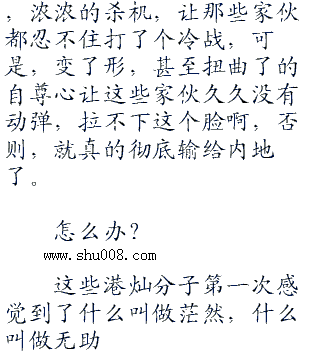 ，浓浓的杀机，让那些家伙
都忍不住打了个冷战，可
是，变了形，甚至扭曲了的
自尊心让这些家伙久久没有
动弹，拉不下这个脸啊，否
则，就真的彻底输给内地
了。
怎么办？
www.shu008.com
这些港灿分子第一次感
觉到了什么叫做茫然，什么
叫做无助